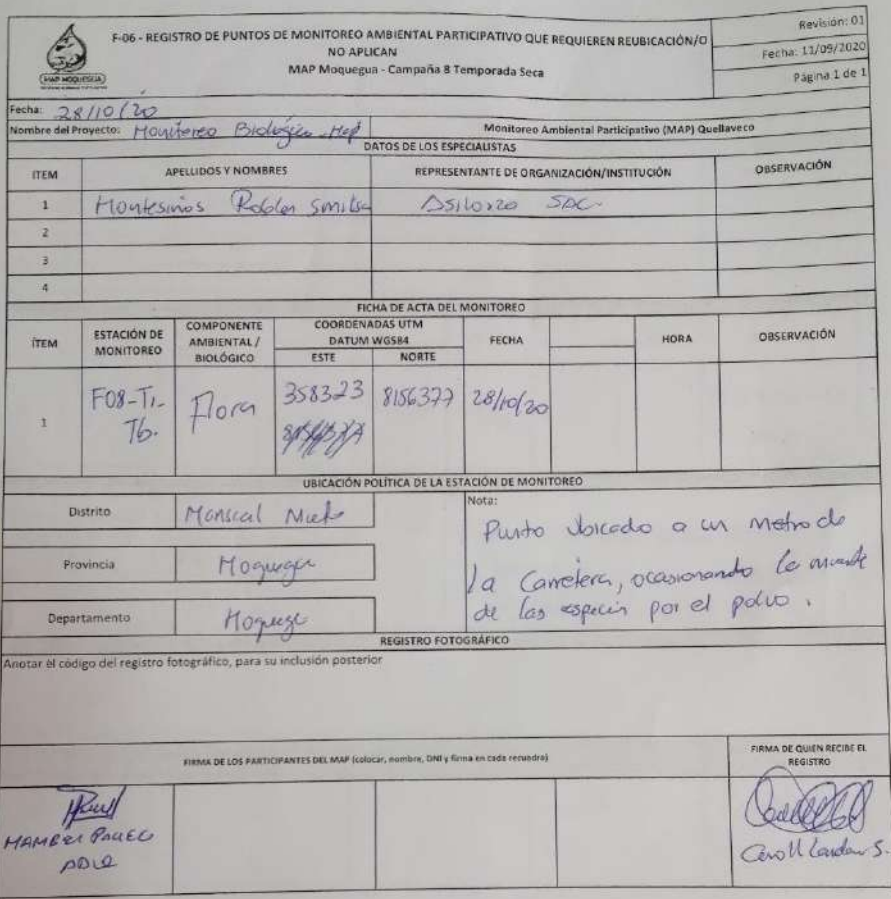 F-06 - REGISTRO DE PUNTOS DE MONITOREO AMBIENTAL PARTICIPATIVO QUE REQUIEREN REUBICACIÓN/O
NO APLICAN
MAP Moquegua - Campaña 8 Temporada Seca
MAP MOQUEGUA
Revisión: 01
Fecha: 11/09/2020
Página 1 de 1
Fecha: 28/10/20
Nombre del Proyecto: Monitoreo Biológico - Map Monitoreo Ambiental Participativo (MAP) Quellaveco
DATOS DE LOS ESPECIALISTAS
ITEM APELLIDOS Y NOMBRES REPRESENTANTE DE ORGANIZACIÓN/INSTITUCIÓN OBSERVACIÓN
1 Montesinos Robles SAC
2
3
4
FICHA DE ACTA DEL MONITOREO
ÍTEM ESTACIÓN DE MONITOREO COMPONENTE AMBIENTAL / BIOLÓGICO COORDENADAS UTM DATUM WGS84 FECHA HORA OBSERVACIÓN
ESTE NORTE
1 F08-T1- Flora 358323 8156377 28/10/20
Tb.
UBICACIÓN POLÍTICA DE LA ESTACIÓN DE MONITOREO
Distrito Mariscal Nieto
Provincia Moquegua
Departamento Moquegua
Nota:
Punto ubicado a un metro de
la carretera, ocasionando la muerte
de las especies por el polvo.
REGISTRO FOTOGRÁFICO
Anotar el código del registro fotográfico, para su inclusión posterior
FIRMA DE LOS PARTICIPANTES DEL MAP (colocar, nombre, DNI y firma en cada recuadro)
FIRMA DE QUIEN RECIBE EL
REGISTRO